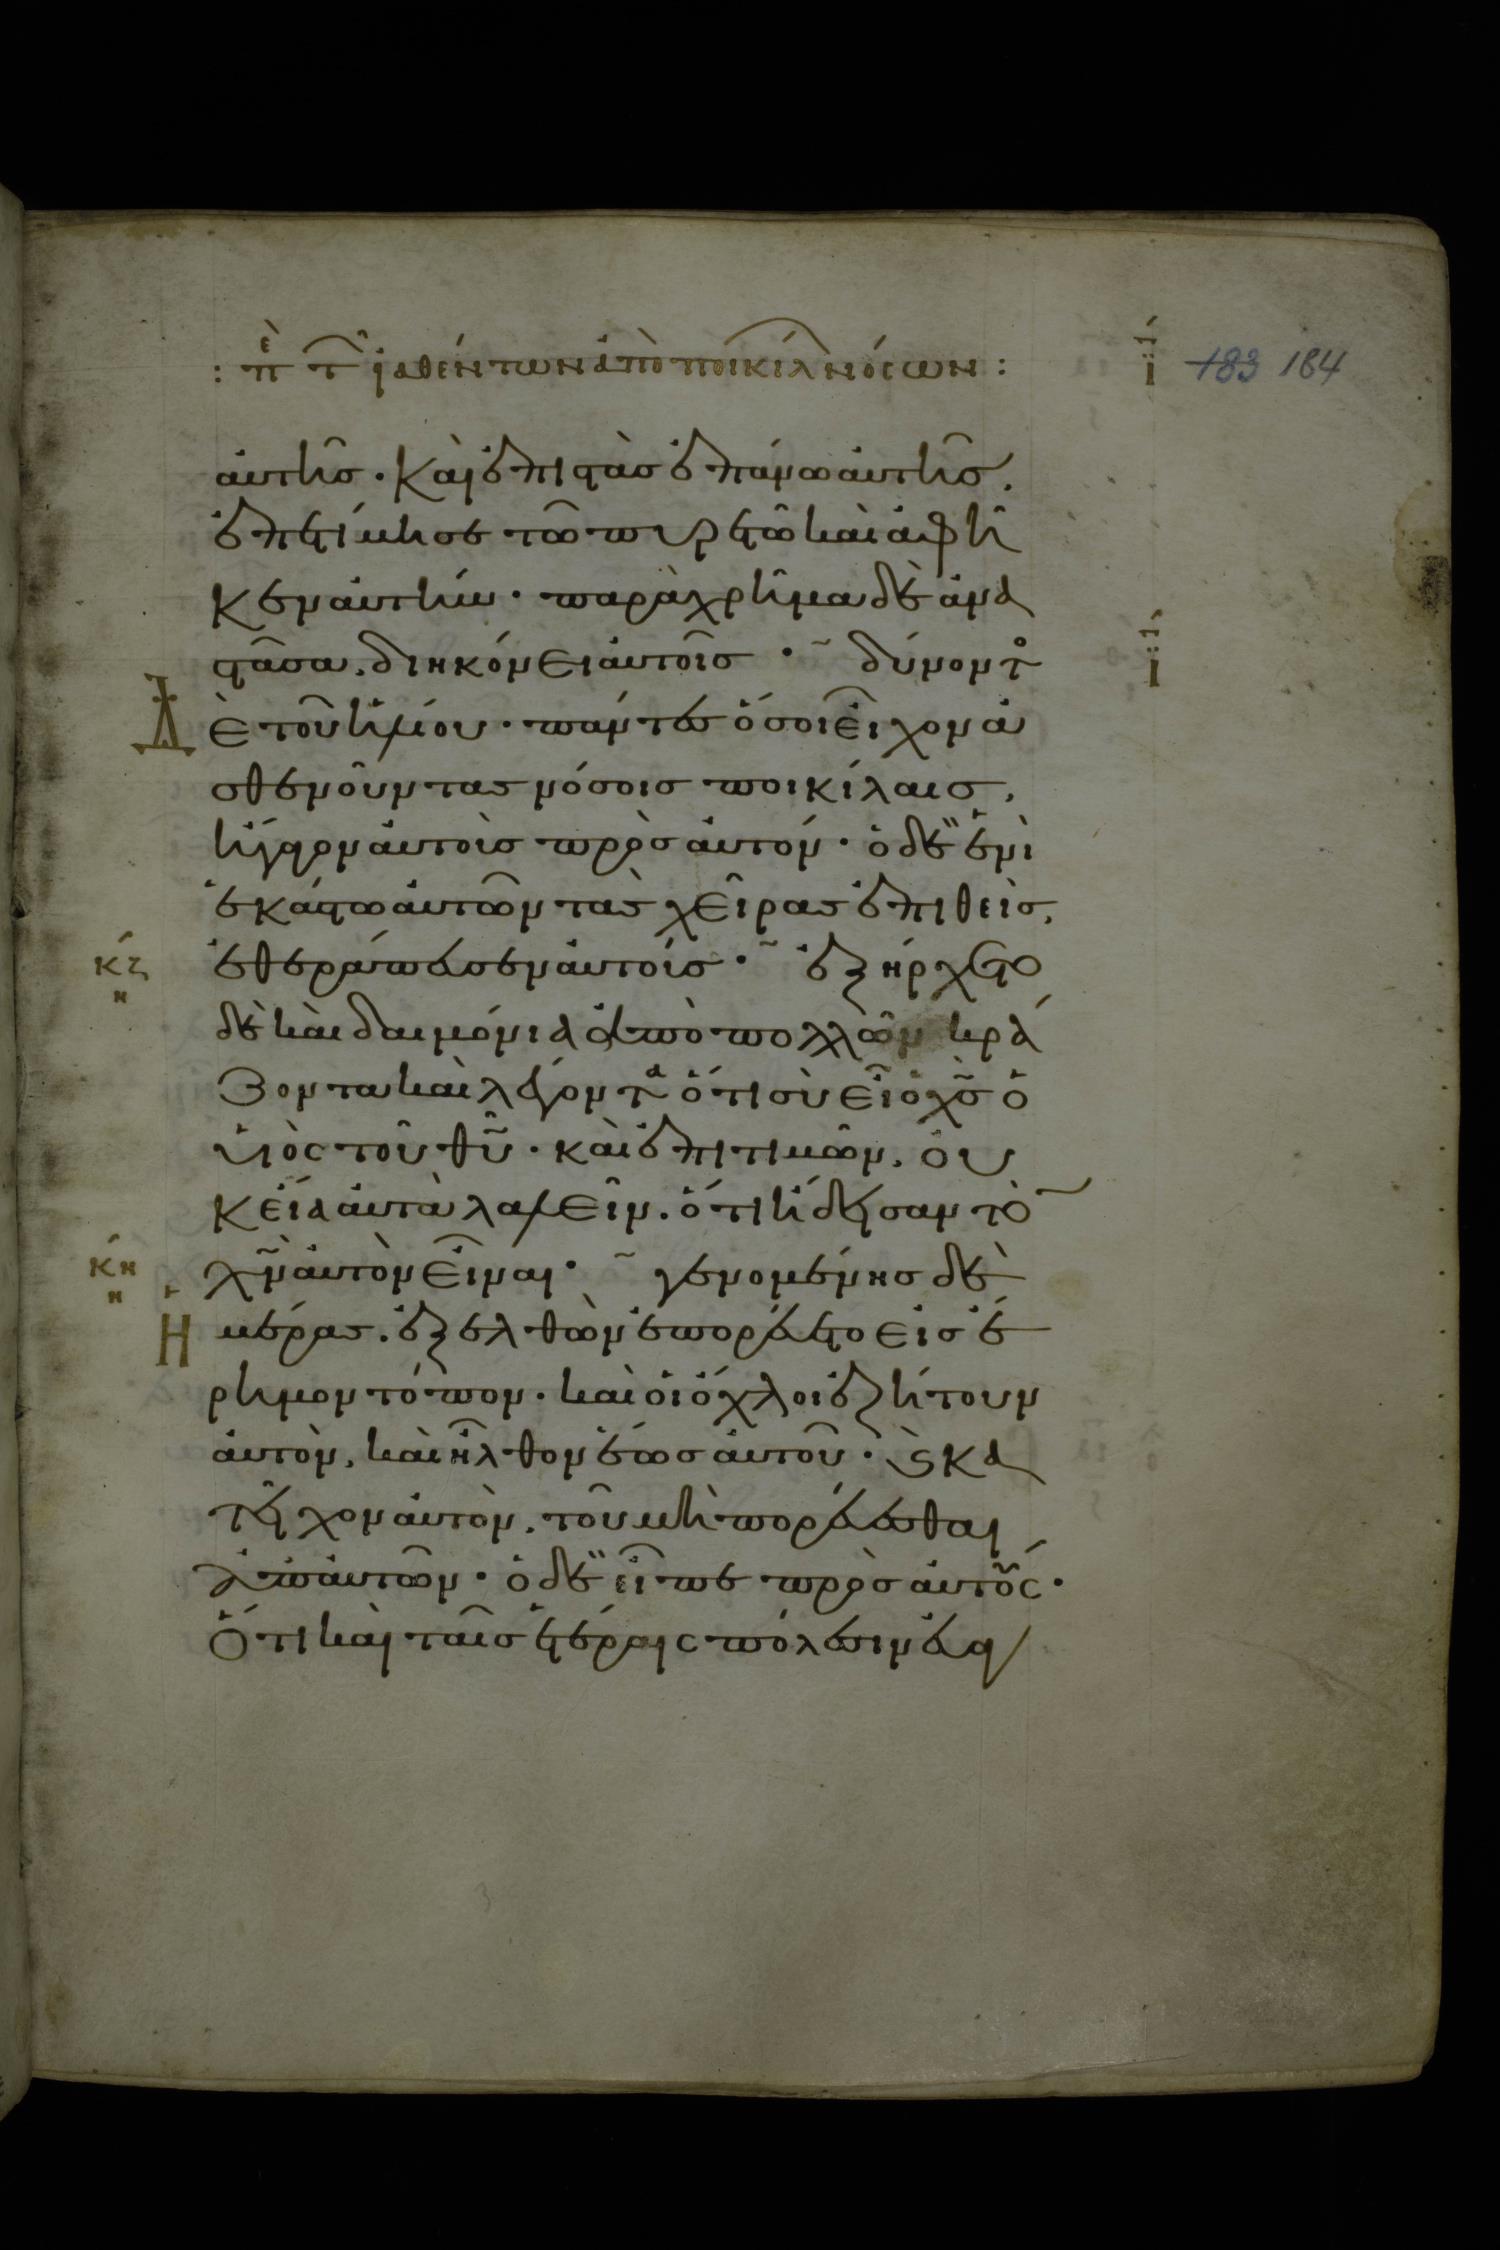 : πε τ ἰαθέντων ἀπὸ ποικίλ νόσων : ι 183 184
αὐτῆς· Καὶ ἐπιστὰς ἐπάνω αὐτῆς,
ἐπετίμησε τῶ πυρετῶ καὶ ἀφῆ
κεν αὐτήν· παραχρῆμα δὲ ἀνα
στᾶσα, διηκόνει αὐτοῖς· δύνοντ ι
Δ ὲ τοῦ ἡλίου· πάντες ὅσοι εἶχον ἀ
σθενοῦντας νόσοις ποικίλαις,
ἤγαγον αὐτοὺς πρὸς αὐτόν· ὁ δὲ ἑνὶ
ἑκάστω αὐτῶν τὰς χεῖρας ἐπιθεὶς,
κζ η ἐθεράπευσεν αὐτούς· ἐξήρχετο
δὲ καὶ δαιμόνια ἀπὸ πολλῶν κρά
ζοντα καὶ λέγοντα ὅτι σὺ εἶ ὁ χς ὁ
υἱὸς τοῦ θυ· καὶ ἐπιτιμῶν, οὐ
κ εἴα αὐτὰ λαλεῖν. ὅτι ἤδεισαν τὸ
κη η χν αὐτὸν εἶναι· γενομένης δὲ
Ἡ μέρας. ἐξελθὼν ἐπορεύετο εἰς ἔ
ρημον τόπον. καὶ οἱ ὄχλοι ἐζήτουν
αὐτὸν, καὶ ἦλθον ἕως αὐτοῦ· ϗ κα
τεῖχον αὐτὸν, τοῦ μὴ πορεύεσθαι
ἀπ αὐτῶν· ὁ δὲ εἶπε πρὸς αὐτούς·
Ὅτι καὶ ταῖς ἑτέραις πόλεσιν εὐα